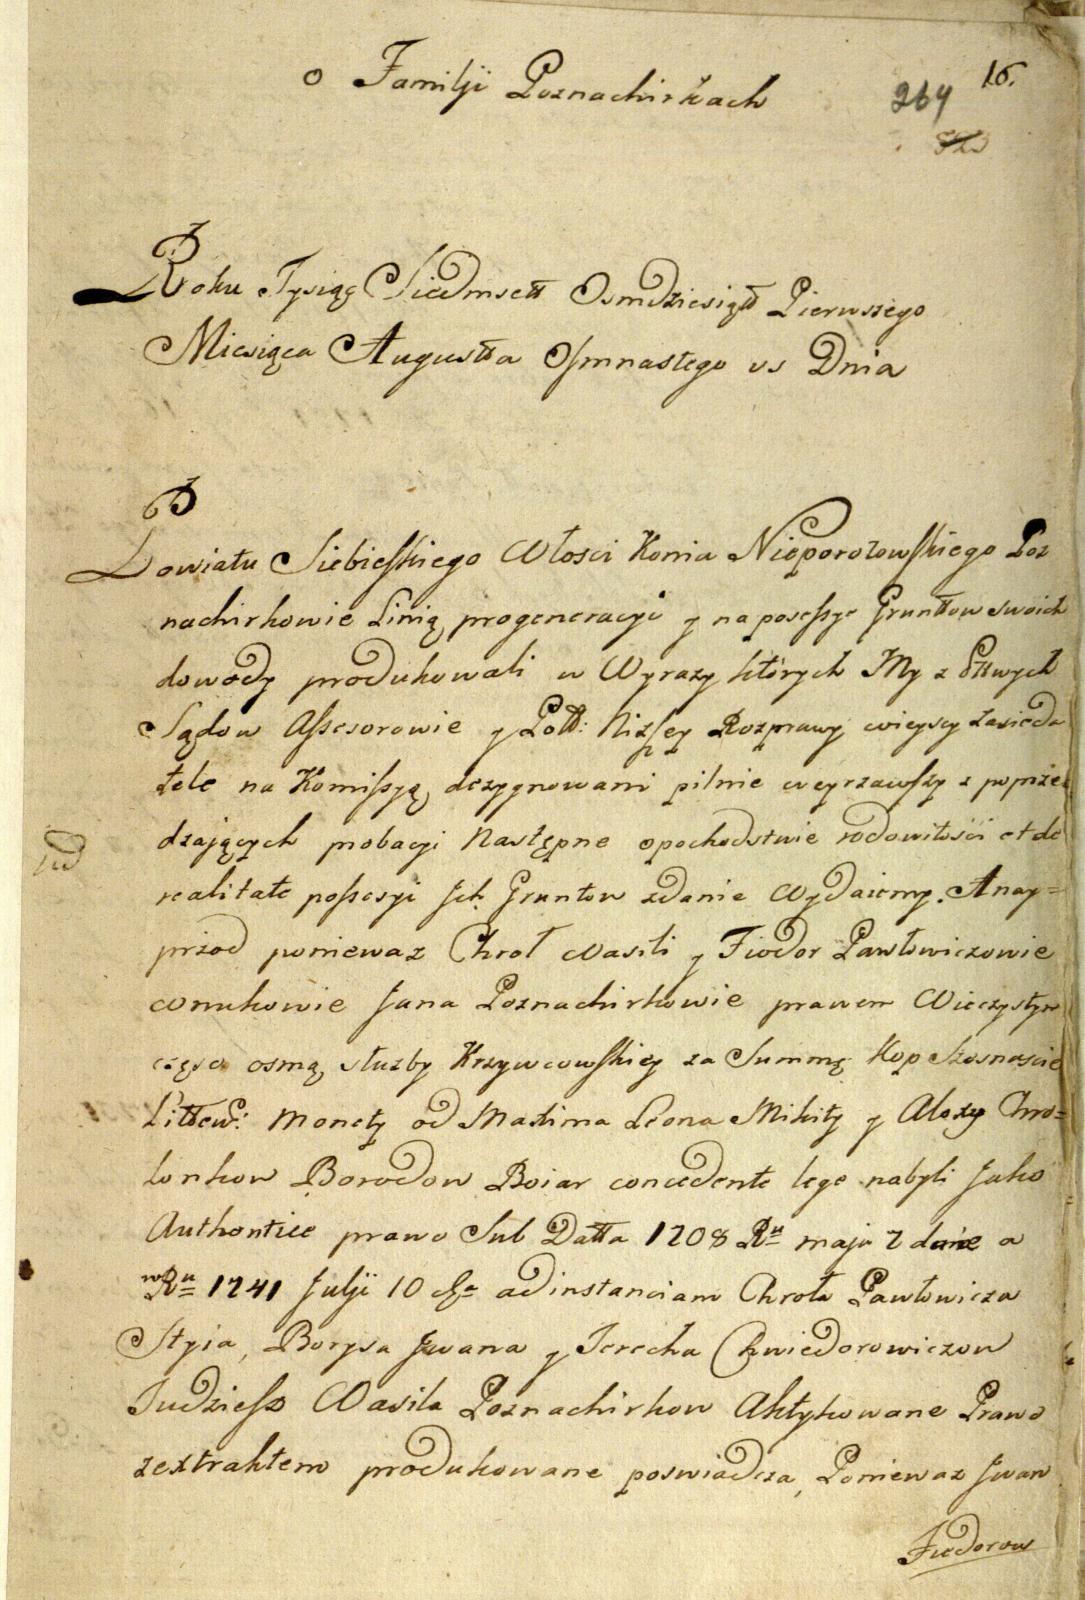 o Familji Poznachirkach
264 16.
Roku Tysiąc Siedmsett Osmdziesiątt Pierwszego
Miesiąca Augustta Osmnastego vs Dnia
Powiatu Siebieskiego Włosci Konia Nieporotowskiego Poz
nachirkowie Linią progeneracyi y na posessye Grunttow swoich
dowody produkowali w Wyrazy których My z
Sądow Assesorowie y Pott: Nizszey Rozprawy wieyscy Zasieda
tele na Komissyą dezygnowani pilnie weyrzawszy z poprze
dzających probacyi Następne o pochodstwie rodowitości et de
realitate possesyi Ich Gruntow zdanie Wydaiemy. A nay=
przod poniewaz Chrol Wasili y Fiodor Pawłowiczowie
wnukowie Jana Poznachirkowie prawem Wieczystym
częsc osmą słuzby Krzywcowskiey za Summę Kop Szesnascie
Littew: Monety od Maxima Leona Mikity y Alexy Chro=
lonkow Borodow Boiar concedente lege nabyli Jako
Authentice prawo Sub Datta 1708 Ru maja 7 danie a
w Ru 1741 Julji 10 ad instanciam Chroła Pawłowicza
Stpia, Borysa Jwana y Terecha Chwiedorowiczow
Tudziesz Wasila Poznachirkow Aktykowane Prawo
z extraktem produkowane poswiadcza, Poniewaz Jwan
Fiedorow